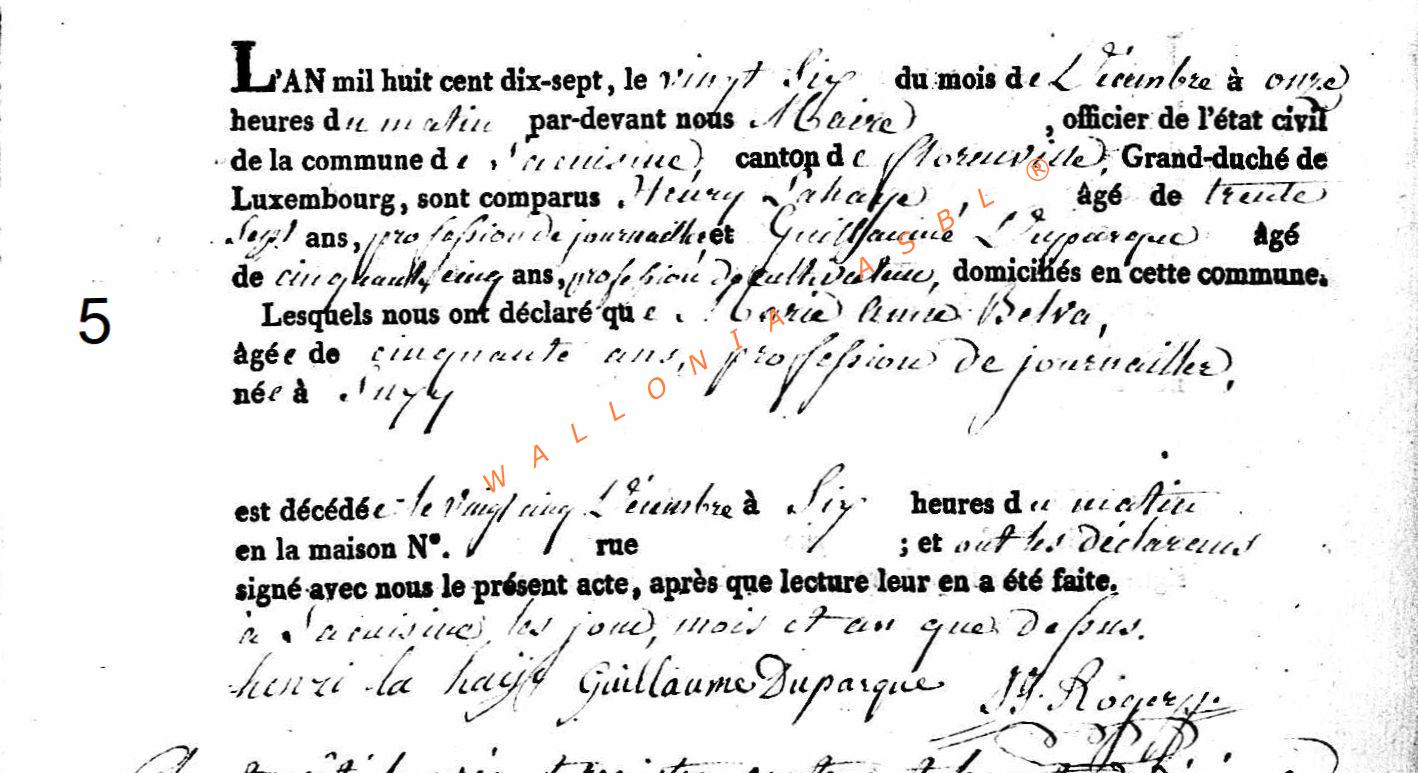 L'AN mil huit cent dix-sept, le vingt Six du mois de Décembre à onze
heures du matin par-devant nous Maire, officier de l'état civil
de la commune de Lacuisine, canton de florenville, Grand-duché de
Luxembourg, sont comparus Henry Lahaye, âgé de trente
Sept ans, profession de journaillier et Guillaume Duparque âgé
de cinquante cinq ans, profession de cultivateur, domiciliés en cette commune.
5
Lesquels nous ont déclaré que Marie anne Belva,
âgée de cinquante ans, profession de journaillier,
née à Suxy
est décédée le vingt cinq Décembre à Six heures du matin
en la maison N°. rue ; et ont les déclarans
signé avec nous le présent acte, après que lecture leur en a été faite.
à Lacuisine, les jour, mois et an que dessus.
henri la haye Guillaume Duparque JJ. Roger
WALLONIA ASBL ®